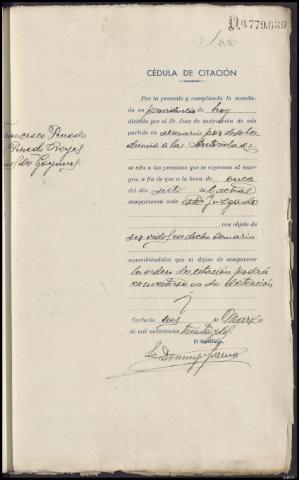 10.779.639
Siete
CÉDULA DE CITACIÓN
Por la presente y cumpliendo lo manda-
do en providencia de hoy
dictado por el Sr. Juez de instrucción de este
partido en sumario por desobe
diencia a la Autoridad
Francisco
se cita a las personas que se expresan al mar-
gen, a fin de que a la hora de once
del día siete del actual
comparezcan ante este Juzgado
, con objeto de
ser oidos en dicho sumario
apercibiéndoles que si dejan de comparecer
la orden de citación podrá
convertirse en de detención
Carballo seis de Marzo
de mil novecientos treinta y
El Secretario,